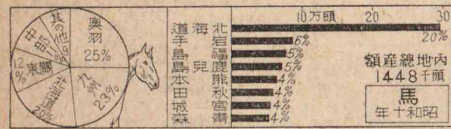 奥羽
25%
九州
23%
北海道
20%
關東
12%
中部
其の他
9%
10万頭 20 30
北海道 20%
岩手 6%
福島 5%
鹿児島 5%
熊本 4%
秋田 4%
宮城 4%
青森 4%
内地總産額
1448千頭
馬
昭和十年